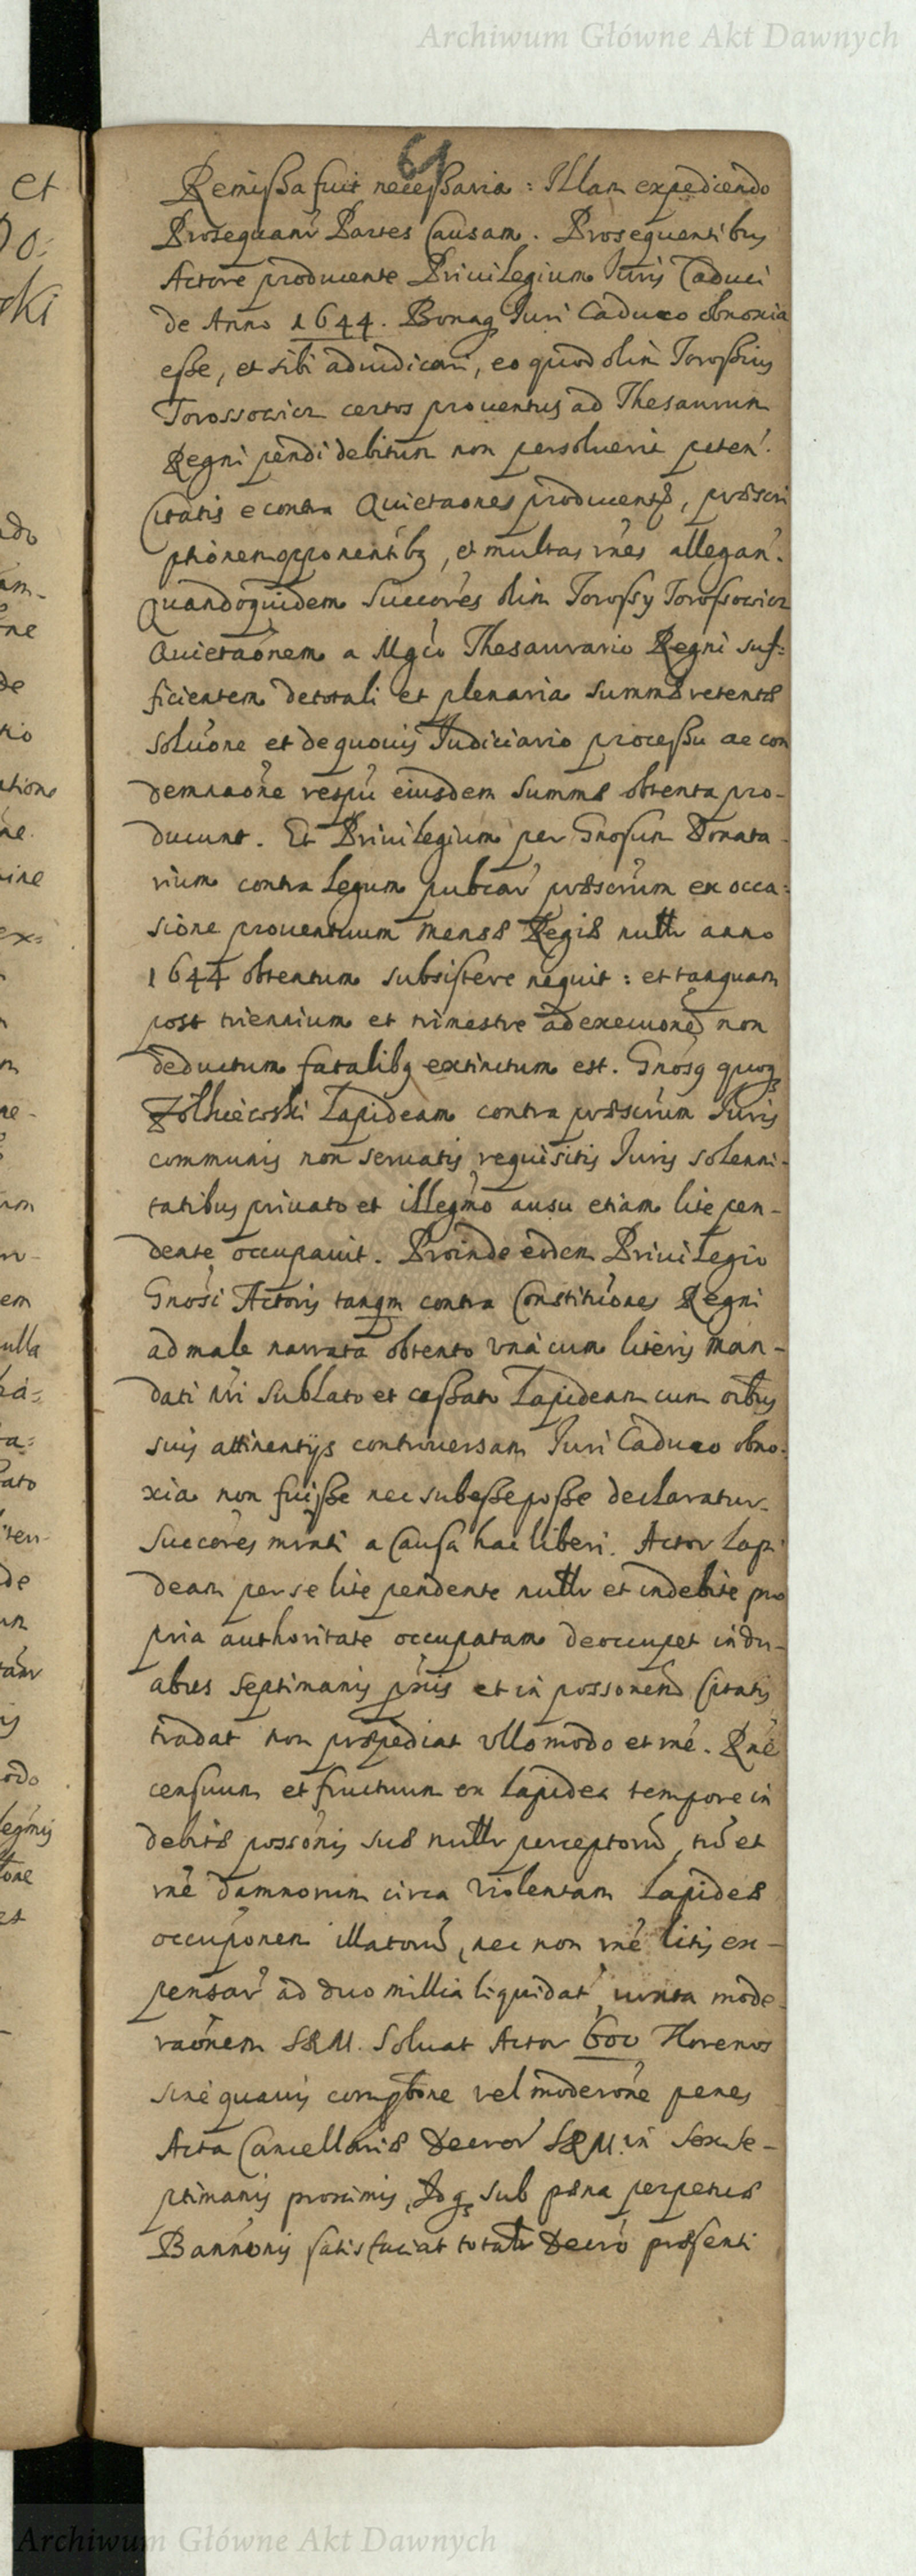 Archiwum Główne Akt Dawnych
61
et
Remißa fuit neceßaria : Illam expediendo
Prosequanr Partes Causam. Prosequentibus
Actore producente Priuilegium Iuris Caduci
de Anno 1644. Bonaq Iuri Caduco obnoxia
eße, et sibi adiudicari, eo quod olim Toroßius
Torossowicz certos prouentus ad Thesaurum
Regni pendi debitum non persoluerit peten.
Citatis econtra Quietaones producentib, præscri
ptionem opponentibq, et multas rnes allegan.
Quandoquidem Succores olim Torossy Torossowicz
Quietaonem a Mgco Thesaurario Regni suf=
ficientem de totali et plenaria summæ retentæ
soluone et de quouis Iudiciario proceßu ac con
demnaone respu eiusdem summæ obtenta pro-
ducunt. Et Priuilegium per Gnosum Donata-
rium contra Legum pubcar præscrum ex occa=
sione prouentuum Mensæ Regiæ nullr anno
1644 obtentum subsistere nequit : et tanquam
post triennium et trimestre ad execuone non
deductum fatalibq extinctum est. Gnosq quoq
Zolkiewski Lapideam contra præscrum Iuris
communis non seruatis requisitis Iuris solenni-
tatibus priuato et illegmo ausu etiam lite pen-
dente occupauit. Proinde eodem Priuilegio
Gnosi Actoris tanqm contra Constituones Regni
ad male narrata obtento vnacum literis Man-
dati Nri sublato et caßato Lapideam cum oibus
suis attinentijs controuersam Iuri Caduco obno-
xia non fuiße nec subeße poße declaratur.
Succores mrati a Causa hac liberi. Actor Lapi
deam per se lite pendente nullr et indebite pro
pria authoritate occupatam deoccupet in du-
abus Septimanis pxiis et in possonem Citatis
tradat non præpediat vllo modo et rne. Rne
censuum et fructuum ex Lapidea tempore in
debitæ possonis suæ nullr perceptoru, tu et
rne damnorum circa violentam Lapideæ
occuponem illatoru, nec non rne litis ex-
pensar ad duo millia liquidat, iuxta mode-
raonem SRM. Soluat Actor 600 Florenos
sine quauis comptone vel moderone penes
Acta Cancellariæ Decror SRM. in Sex Se-
ptimanis proximis, Idq sub pæna perpetuæ
Bannonis satisfaciat totalr Decro præsenti
Archiwum Główne Akt Dawnych